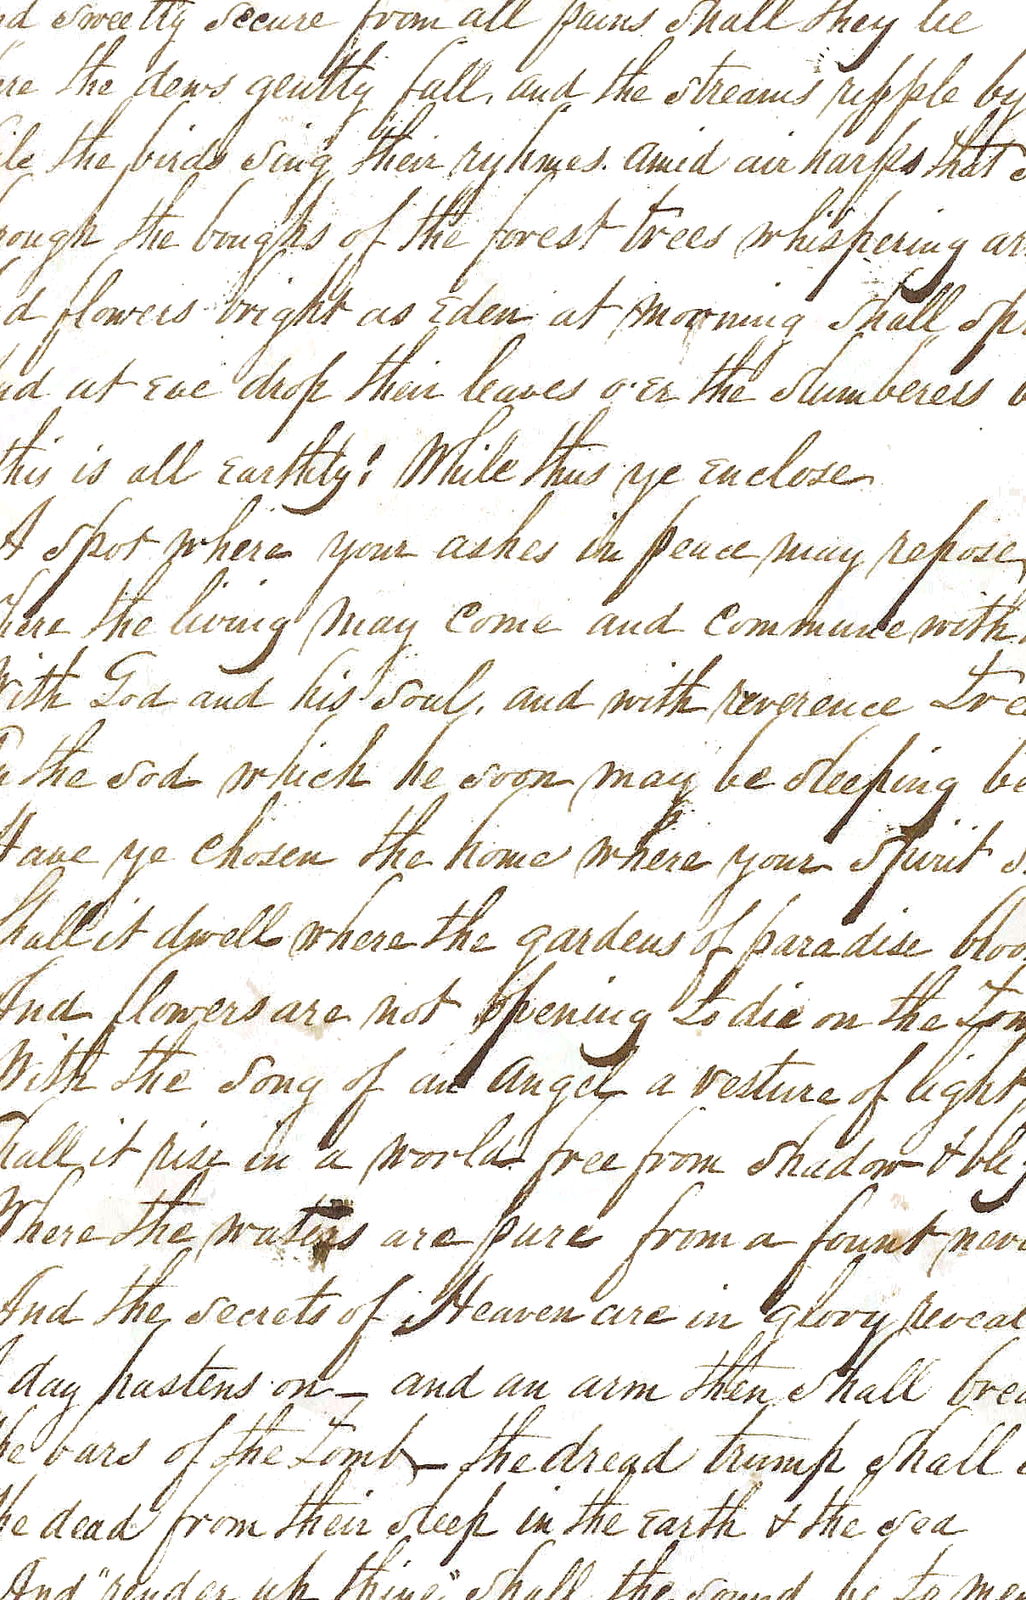 nd sweetly secure from all pains shall they be
ere the dews gently fall, and the streams ripple by
ile the birds sing their ryhmes. amid air harps that
rough the boughs of the forest trees whispering
d flowers bright as Eden at morning shall sp
nd at eve drop their leaves o'er the slumberers
this is all Earthly: While thus ye enclose
A spot where your ashes in peace may repose,
here the living may come and commune with
With God and his soul, and with reverence tre
n the sod which he soon may be sleeping be
Have ye chosen the home where your spirit
Shall it dwell where the gardens of paradise bloo
And flowers are not opening to die on the tom
With the song of an angel a vesture of light
hall it rise in a world free from shadow & bli
Where the waters are pure from a fount neve
And the secrets of Heaven are in glory reveal
day hastens on — and an arm then shall brea
he bars of the tomb — the dread trump shall
he dead from their sleep in the Earth & the sea
And "render up thine" shall the sound be to me